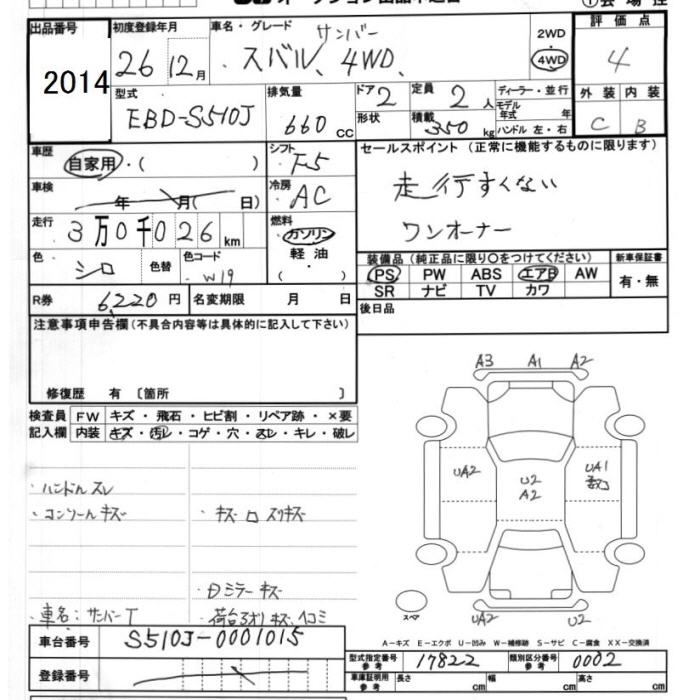 出品番号
2014
初度登録年月
26 12月
車名・グレード
サンバー
スバル、4WD、
2WD
・
4WD
評価点
4
外装 内装
C B
型式
EBD-S510J
排気量
660 CC
ドア 2
形状
定員 2 人
積載 350 kg
ディーラー・並行
モデル年式 年
ハンドル 左・右
車歴
自家用・( )
車検
年 月( 日)
走行
3万0千026 km
色 シロ 色替 色コード W19
シフト
F5
冷房
AC
燃料
ガソリン
軽油
・
セールスポイント(正常に機能するものに限ります)
走行すくない
ワンオーナー
装備品(純正品に限り〇をつけてください)
PS PW ABS エアB AW
SR ナビ TV カワ
新車保証書
有・無
R券 6,220円 名変期限 月 日
後日品
注意事項申告欄(不具合内容等は具体的に記入して下さい)
修復歴 有 〔箇所 〕
検査員記入欄
FW キズ・飛石・ヒビ割・リペア跡・×要
内装 キズ・汚レ・コゲ・穴・スレ・キレ・破レ
・ハンドルスレ
・コンソールキズ
・キズ ロ スリキズ
・Dミラーキズ
・車名:サンバーT
荷台 3オリ キズ、ヘコミ
A3 A1 A2
UA2
U2
A2
UA1
スペア
UA2 U2
A-キズ E-エクボ U-凹み W-補修跡 S-サビ C-腐食 XX-交換済
車台番号 S510J-0001015
登録番号
型式指定番号 参考 17822
類別区分番号 参考 0002
車庫証明用 参考 長さ cm 幅 cm 高さ cm